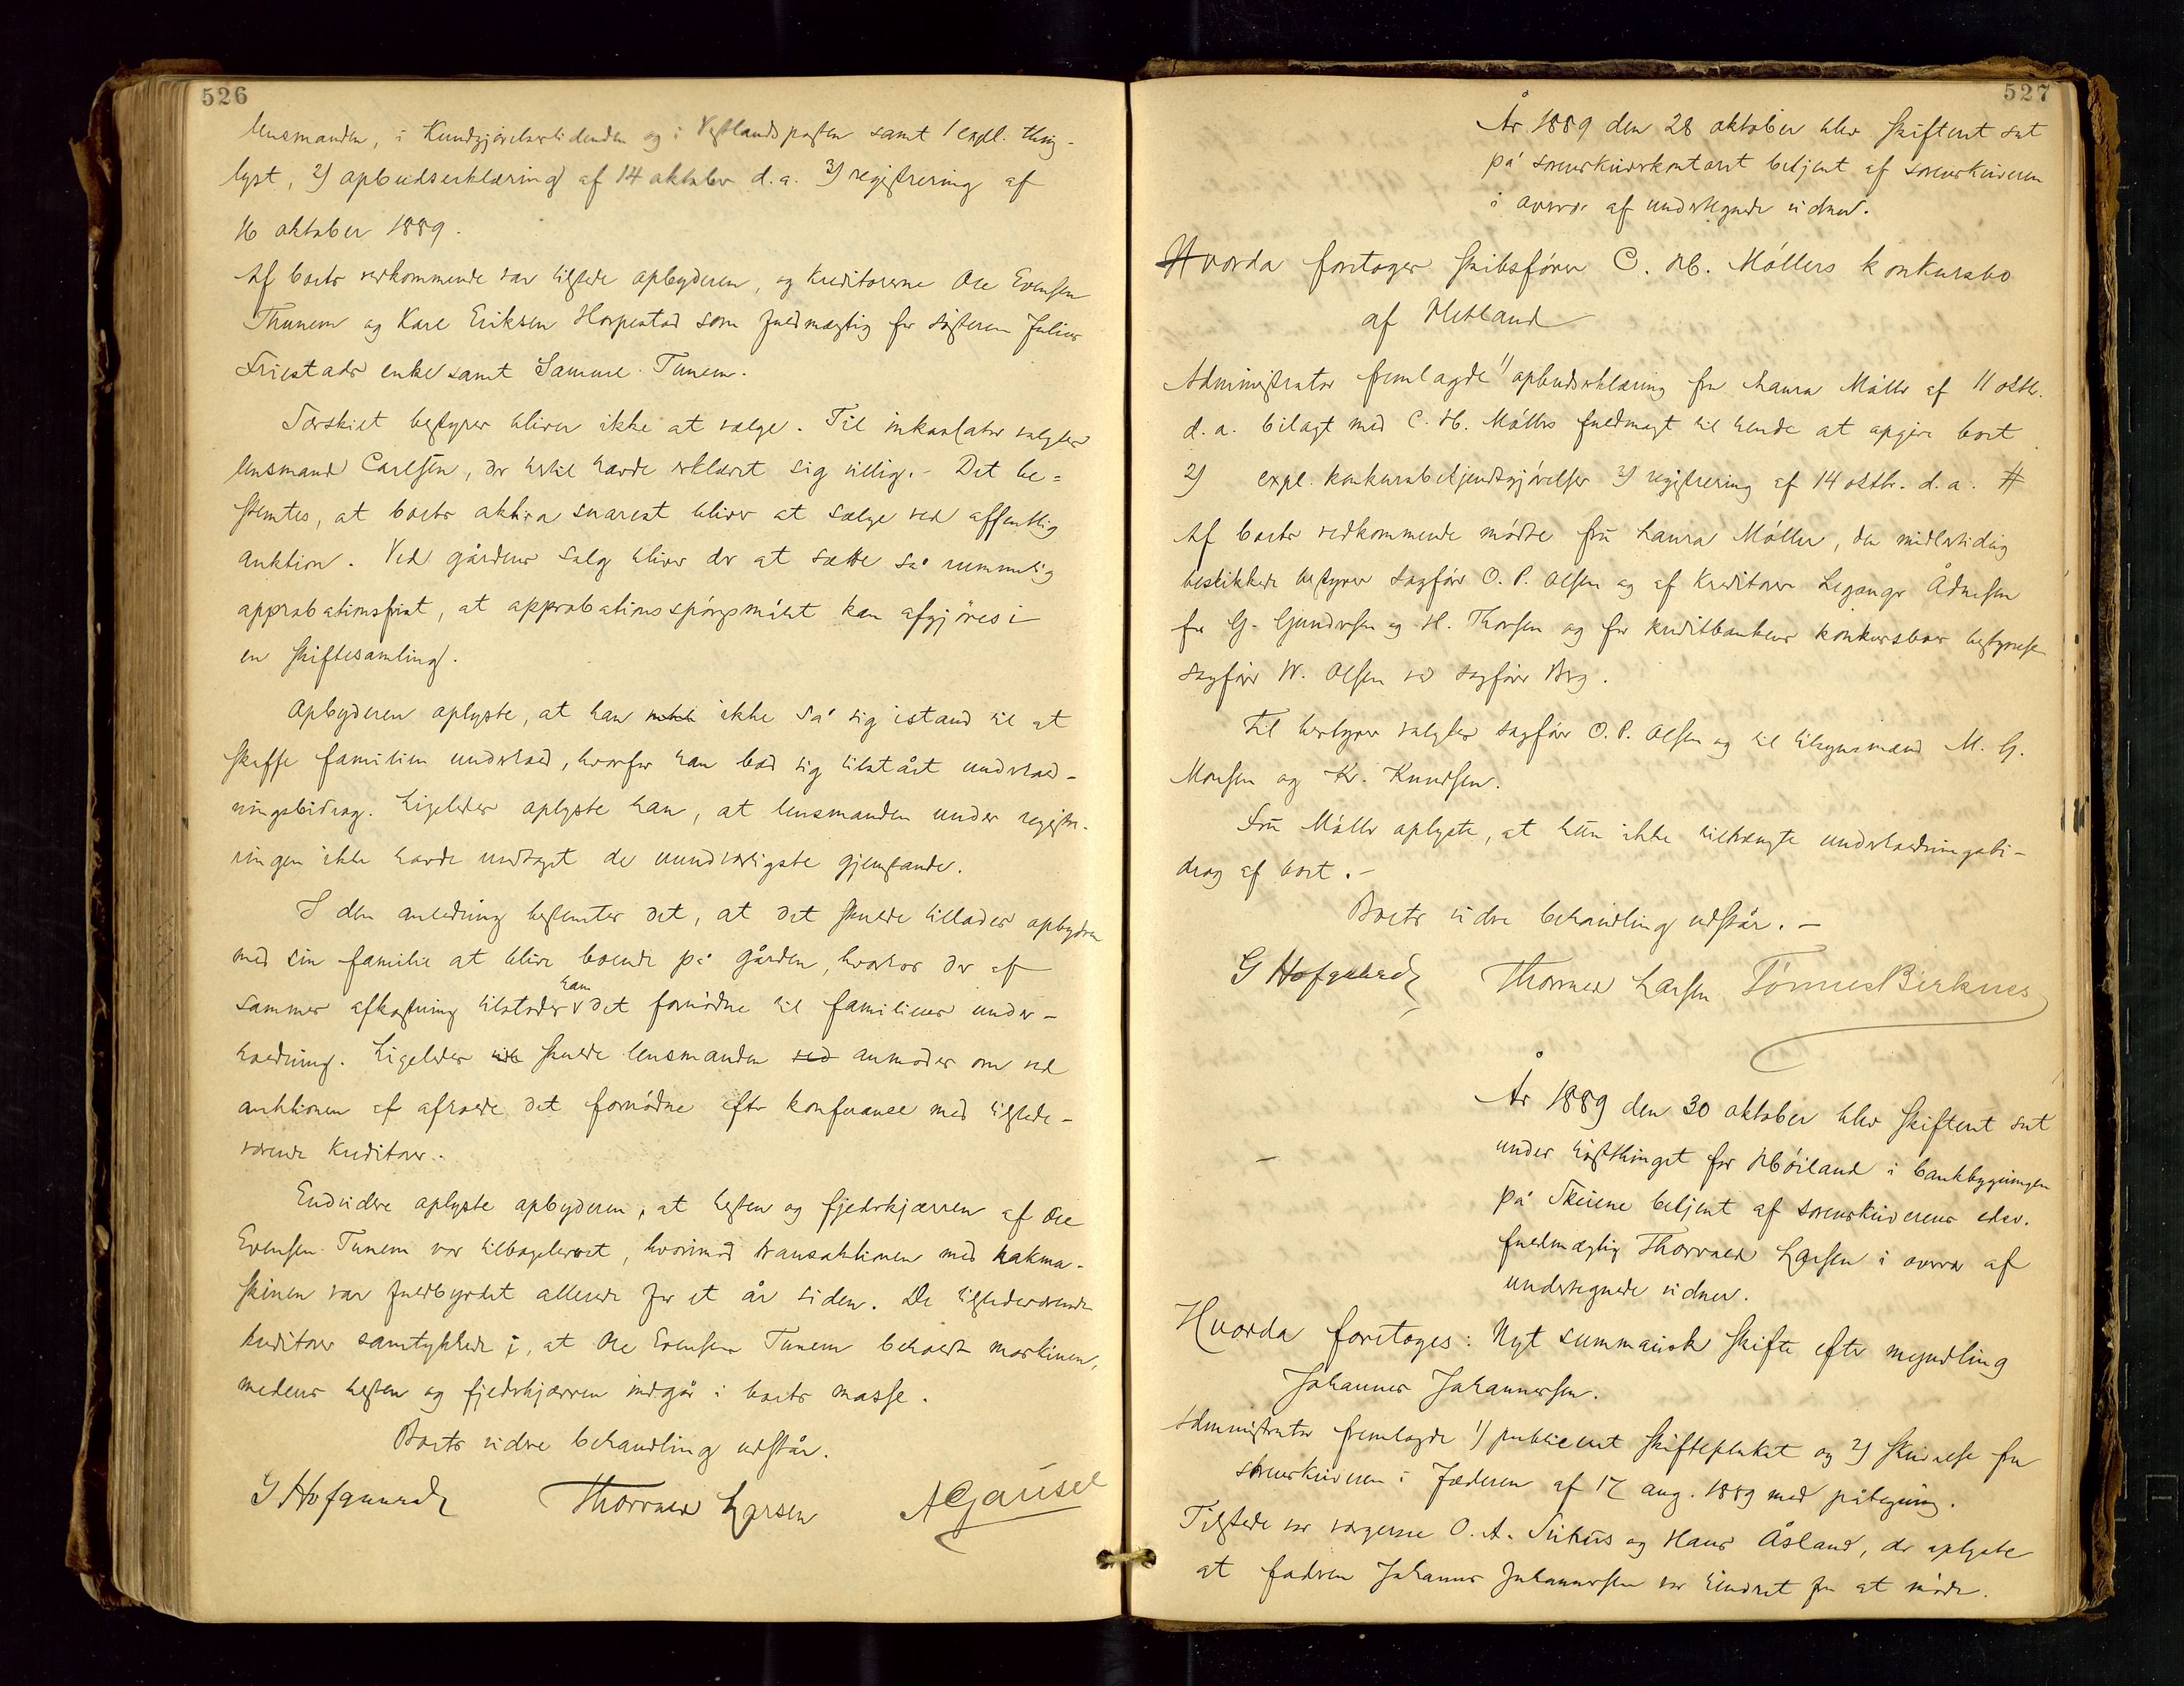 526
lensmanden, i Kundgjørelsestidenden og i Vestlandsposten samt 1 expl. thing-
lyst, 2) opbudserklæring af 14 oktober d.a. 3) registrering af
16 oktober 1889.
Af boets vedkommende var tilstede opbyderen, og kreditorerne Ole Evensen
Thunem og Karl Eriksen Horpestad som fuldmægtig for søsteren Julius
Friestads enke samt Samme Tunem.
Særskilt bestyrer bliver ikke at vælge. Til inkassator valgtes
lensmand Carlsen, der hertil havde erklæret sig villig. - Det be=
stemtes, at boets aktiva snarest bliver at sælge ved offentlig
auktion. Ved gårdens salg bliver der at sætte så rummelig
approbationsfrist, at approbationsspørgsmålet kan afgjøres i
en skiftesamling.
Opbyderen oplyste, at han ikke så sig istand til at
skaffe familien underhold, hvorfor han bad sig tilstået underhold-
ningsbidrag. Ligeledes oplyste han, at lensmanden under registre-
ringen ikke havde undtaget de uundværligste gjenstande.
I den anledning bestemtes det, at det skulde tillades opbyderen
med sin familie at blive boende på gården, hvorhos der af
sammes afkastning tilstodes ham det fornødne til familiens under-
holdning. Ligeledes skulde lensmanden ved anmodes om ved
auktionen at afholde det fornødne efter konferance med tilstede-
værende kreditorer.
Endvidere oplyste opbyderen, at hesten og fjedrkjærren af Ole
Evensen Tunem var tilbageleveret, hvorimod transaktionen med hakma-
skinen var fuldbyrdet allerede for et år siden. De tilstedeværende
kreditorer samtykkede i, at Ole Evensen Tunem beholdt maskinen,
medens hesten og fjedrkjærren indgår i boets masse.
Boets videre behandling udstår.
G Hofgaard Thorvald Larsen A Gausel
527
År 1889 den 28 oktober blev skifteret sat
på sorenskriverkontoret betjent af sorenskriveren
i overvær af undertegnede vidner.
Hvorda foretoges skibsfører C. H. Møllers konkursbo
af Hetland
Administrator fremlagde 1) opbudserklæring fra Laura Møller af 11 oktbr.
d.a. bilagt med C. H. Møllers fuldmagt til hende at opgive boet
2) expl. konkursbekjendtgjørelser 3) registrering af 14 oktbr. d.a. #
Af boets vedkommende mødte fru Laura Møller, den midlertidig
beskikkede bestyrer sagfører O. P. Olsen og af kreditorer Legangr Ådnesen
for G. Gundersen og H. Thorsen og for kreditbankens konkursboes bestyrelse
sagfører W. Olsen ved sagfører Berg.
Til bestyrer valgtes sagfører O. P. Olsen og til tilsynsmænd M. G.
Monsen og Kr. Knudsen.
Fru Møller oplyste, at hun ikke tiltrængte underholdningsbi-
drag af boet. -
Boets videre behandling udstår. -
G Hofgaard Thorvald Larsen Tønnes Birknes
År 1889 den 30 oktober blev skifteret sat
under høstthinget for Høiland i bankbygningen
på Skeiene betjent af sorenskriverens edsv.
fuldmægtig Thorvald Larsen i overvær af
undertegnede vidner.
Hvorda foretoges: Nyt summarisk skifte efter myndling
Johannes Johannessen.
Administrator fremlagde 1) publiceret skifteplakat og 2) skrivelse fra
sorenskriveren i Jæderen af 17 aug. 1889 med påtegning.
Tilstede var værgerne O. A. og Hans Åsland, der oplyste
at faderen Johannes Johannessen var hindret fra at møde.